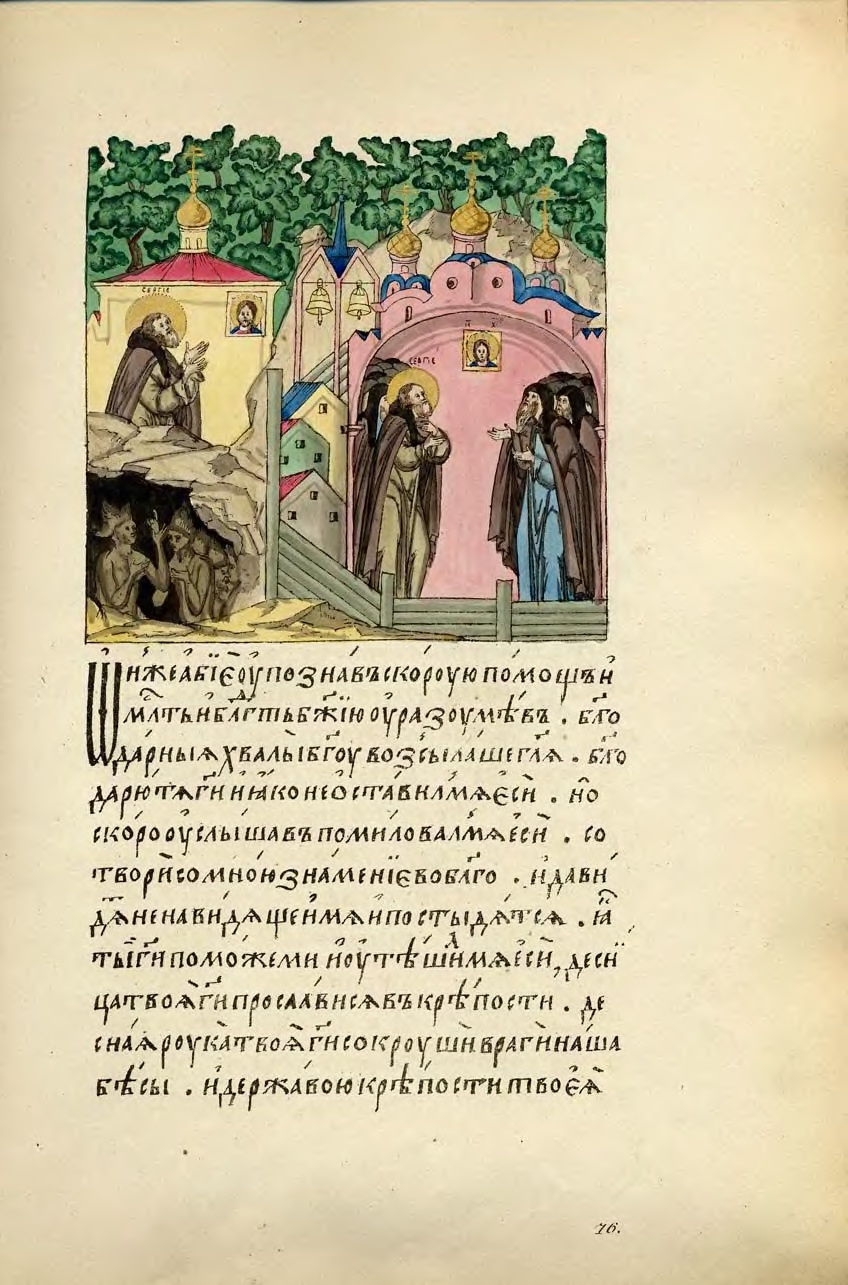 СЕРГIЕ
СЕРГIЕ
Ѿнжеабїеоупознавъскоруюпомощьи
мл҃тьиблⷣгтьбж҃їюоуразоумѣвъ . бл҃го
дарныяхвалыбг҃оувозсылашегл҃я . бл҃го
дарютѧг҃иияконеоставилмѧєси . но
скорооуслышавъпомиловалмѧєси . со
творисомноюзнаменїевоблг҃о . идави
дѧтненавидѧщеимѧипостыдѧтсѧ . ꙗ҃
тыг҃ипоможемииоутѣшимѧеси, десни
цатвоѧг҃ипрослависѧвъкрѣпости . де
снаѧроукатвоѧг҃исокроушиврагинаша
бѣсы . идержавоюкрѣпоститвоеѧ
76.